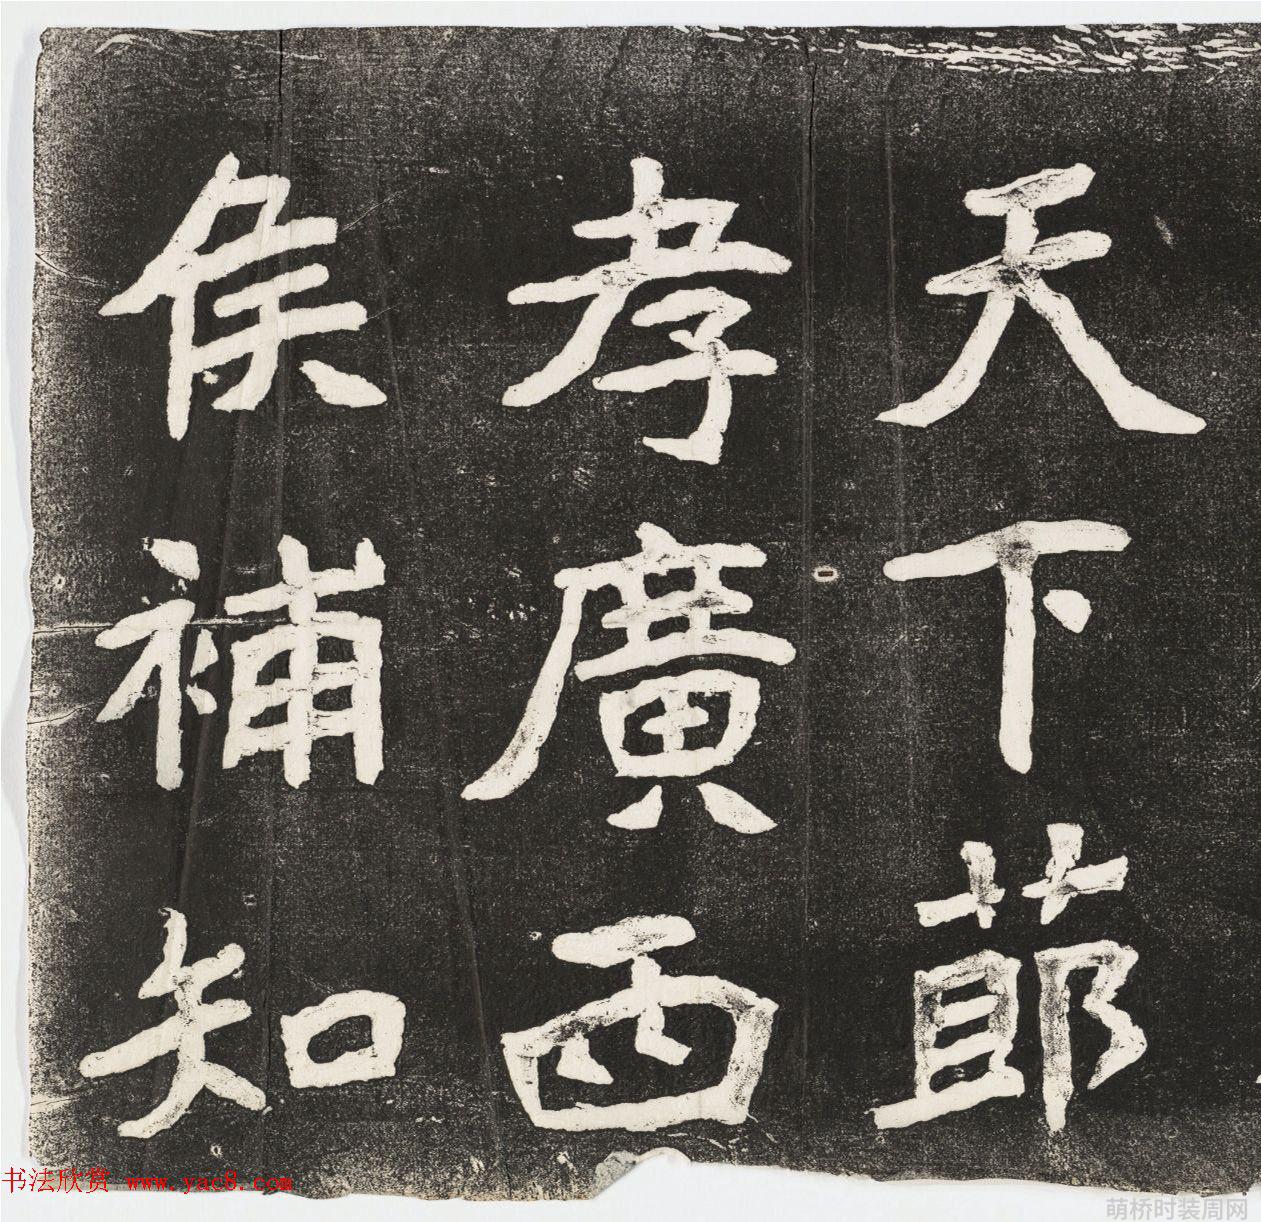 天下莭
孝廣西
侯補知
书法欣赏 www.yac8.com
萌桥时装周网